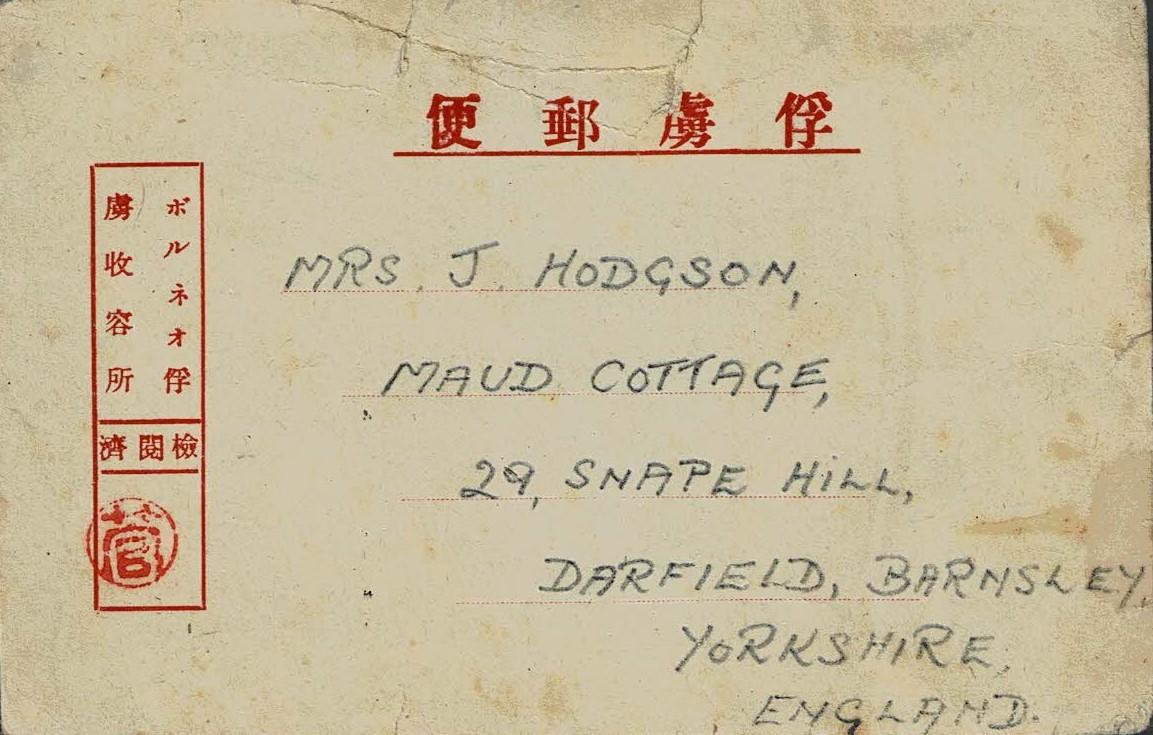 便郵虜俘
ボルネオ俘
虜收容所
濟閲檢
菅
MRS. J. HODGSON,
MAUD COTTAGE,
29, SNAPE HILL,
DARFIELD, BARNSLEY,
YORKSHIRE,
ENGLAND.